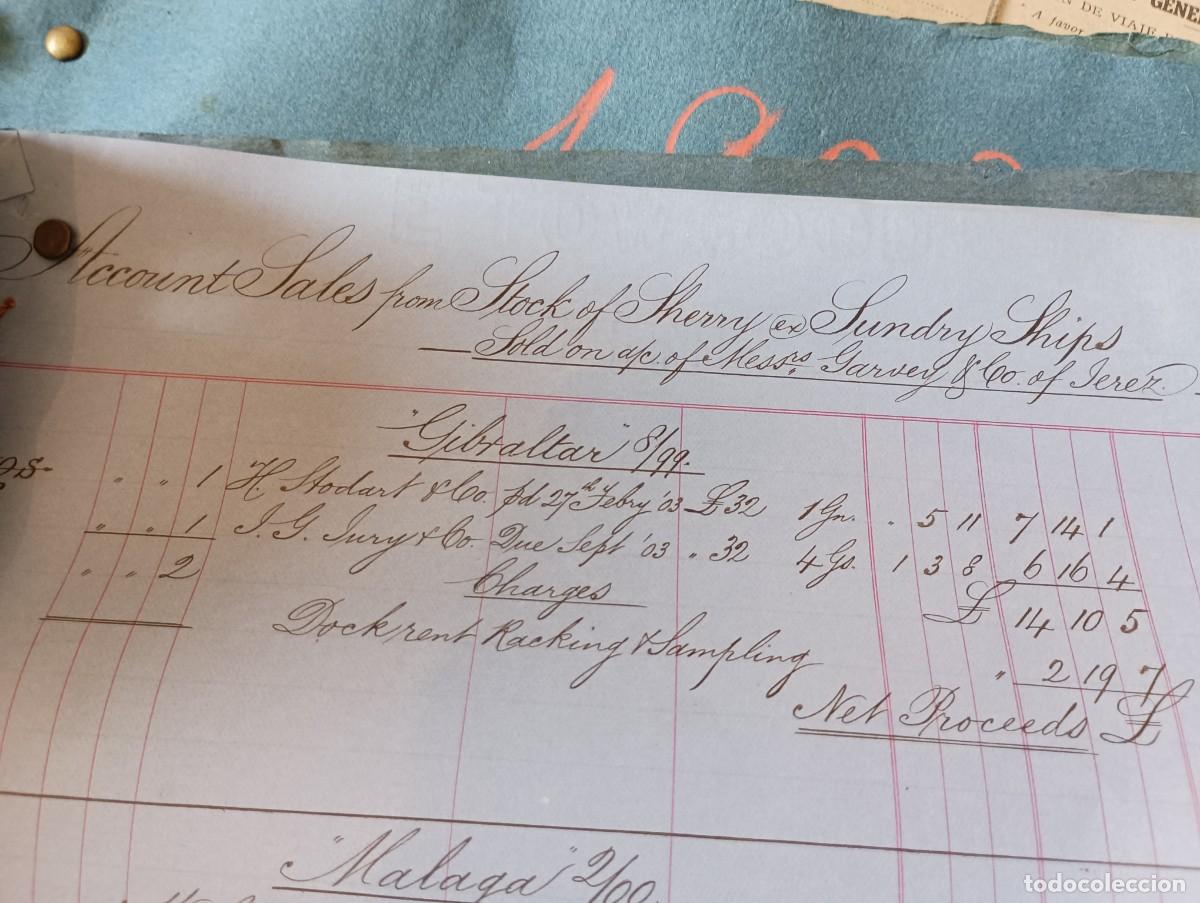 GENE
DE VIAJE
A favor
Account Sales from Stock of Sherry ex Sundry Ships
Sold on a/c. of Messrs. Garvey & Co. of Jerez.
"Gibraltar" 8/99.
" " 1 H. Stodart & Co. pd 27th Febry '03 £32 1 Gn. " 5 11 7 14 1
" " 1 J. G. Jury & Co. Due Sept '03 " 32 4 Gs. 1 3 8 6 16 4
" " 2 Charges £ 14 10 5
Dockrent Racking & Sampling " 2 19 7
Net Proceeds £
"Malaga" 2/00.
todocoleccion